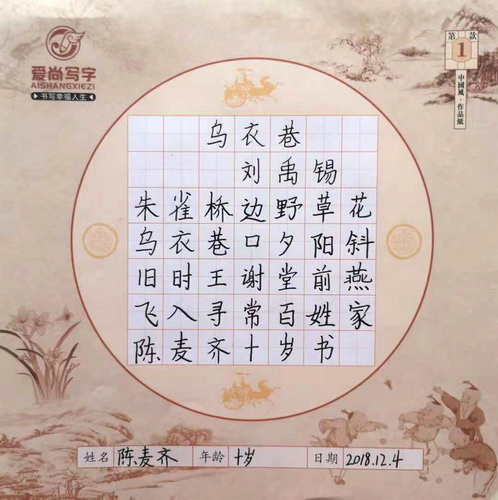 爱尚写字
AISHANGXIEZI
书写幸福人生
第一款
1
中國風·作品紙
乌衣巷
刘禹锡
朱雀桥边野草花
乌衣巷口夕阳斜
旧时王谢堂前燕
飞入寻常百姓家
陈麦齐十岁书
姓名 陈麦齐 年龄 十岁 日期 2018.12.4